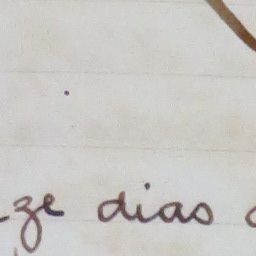 ze dias